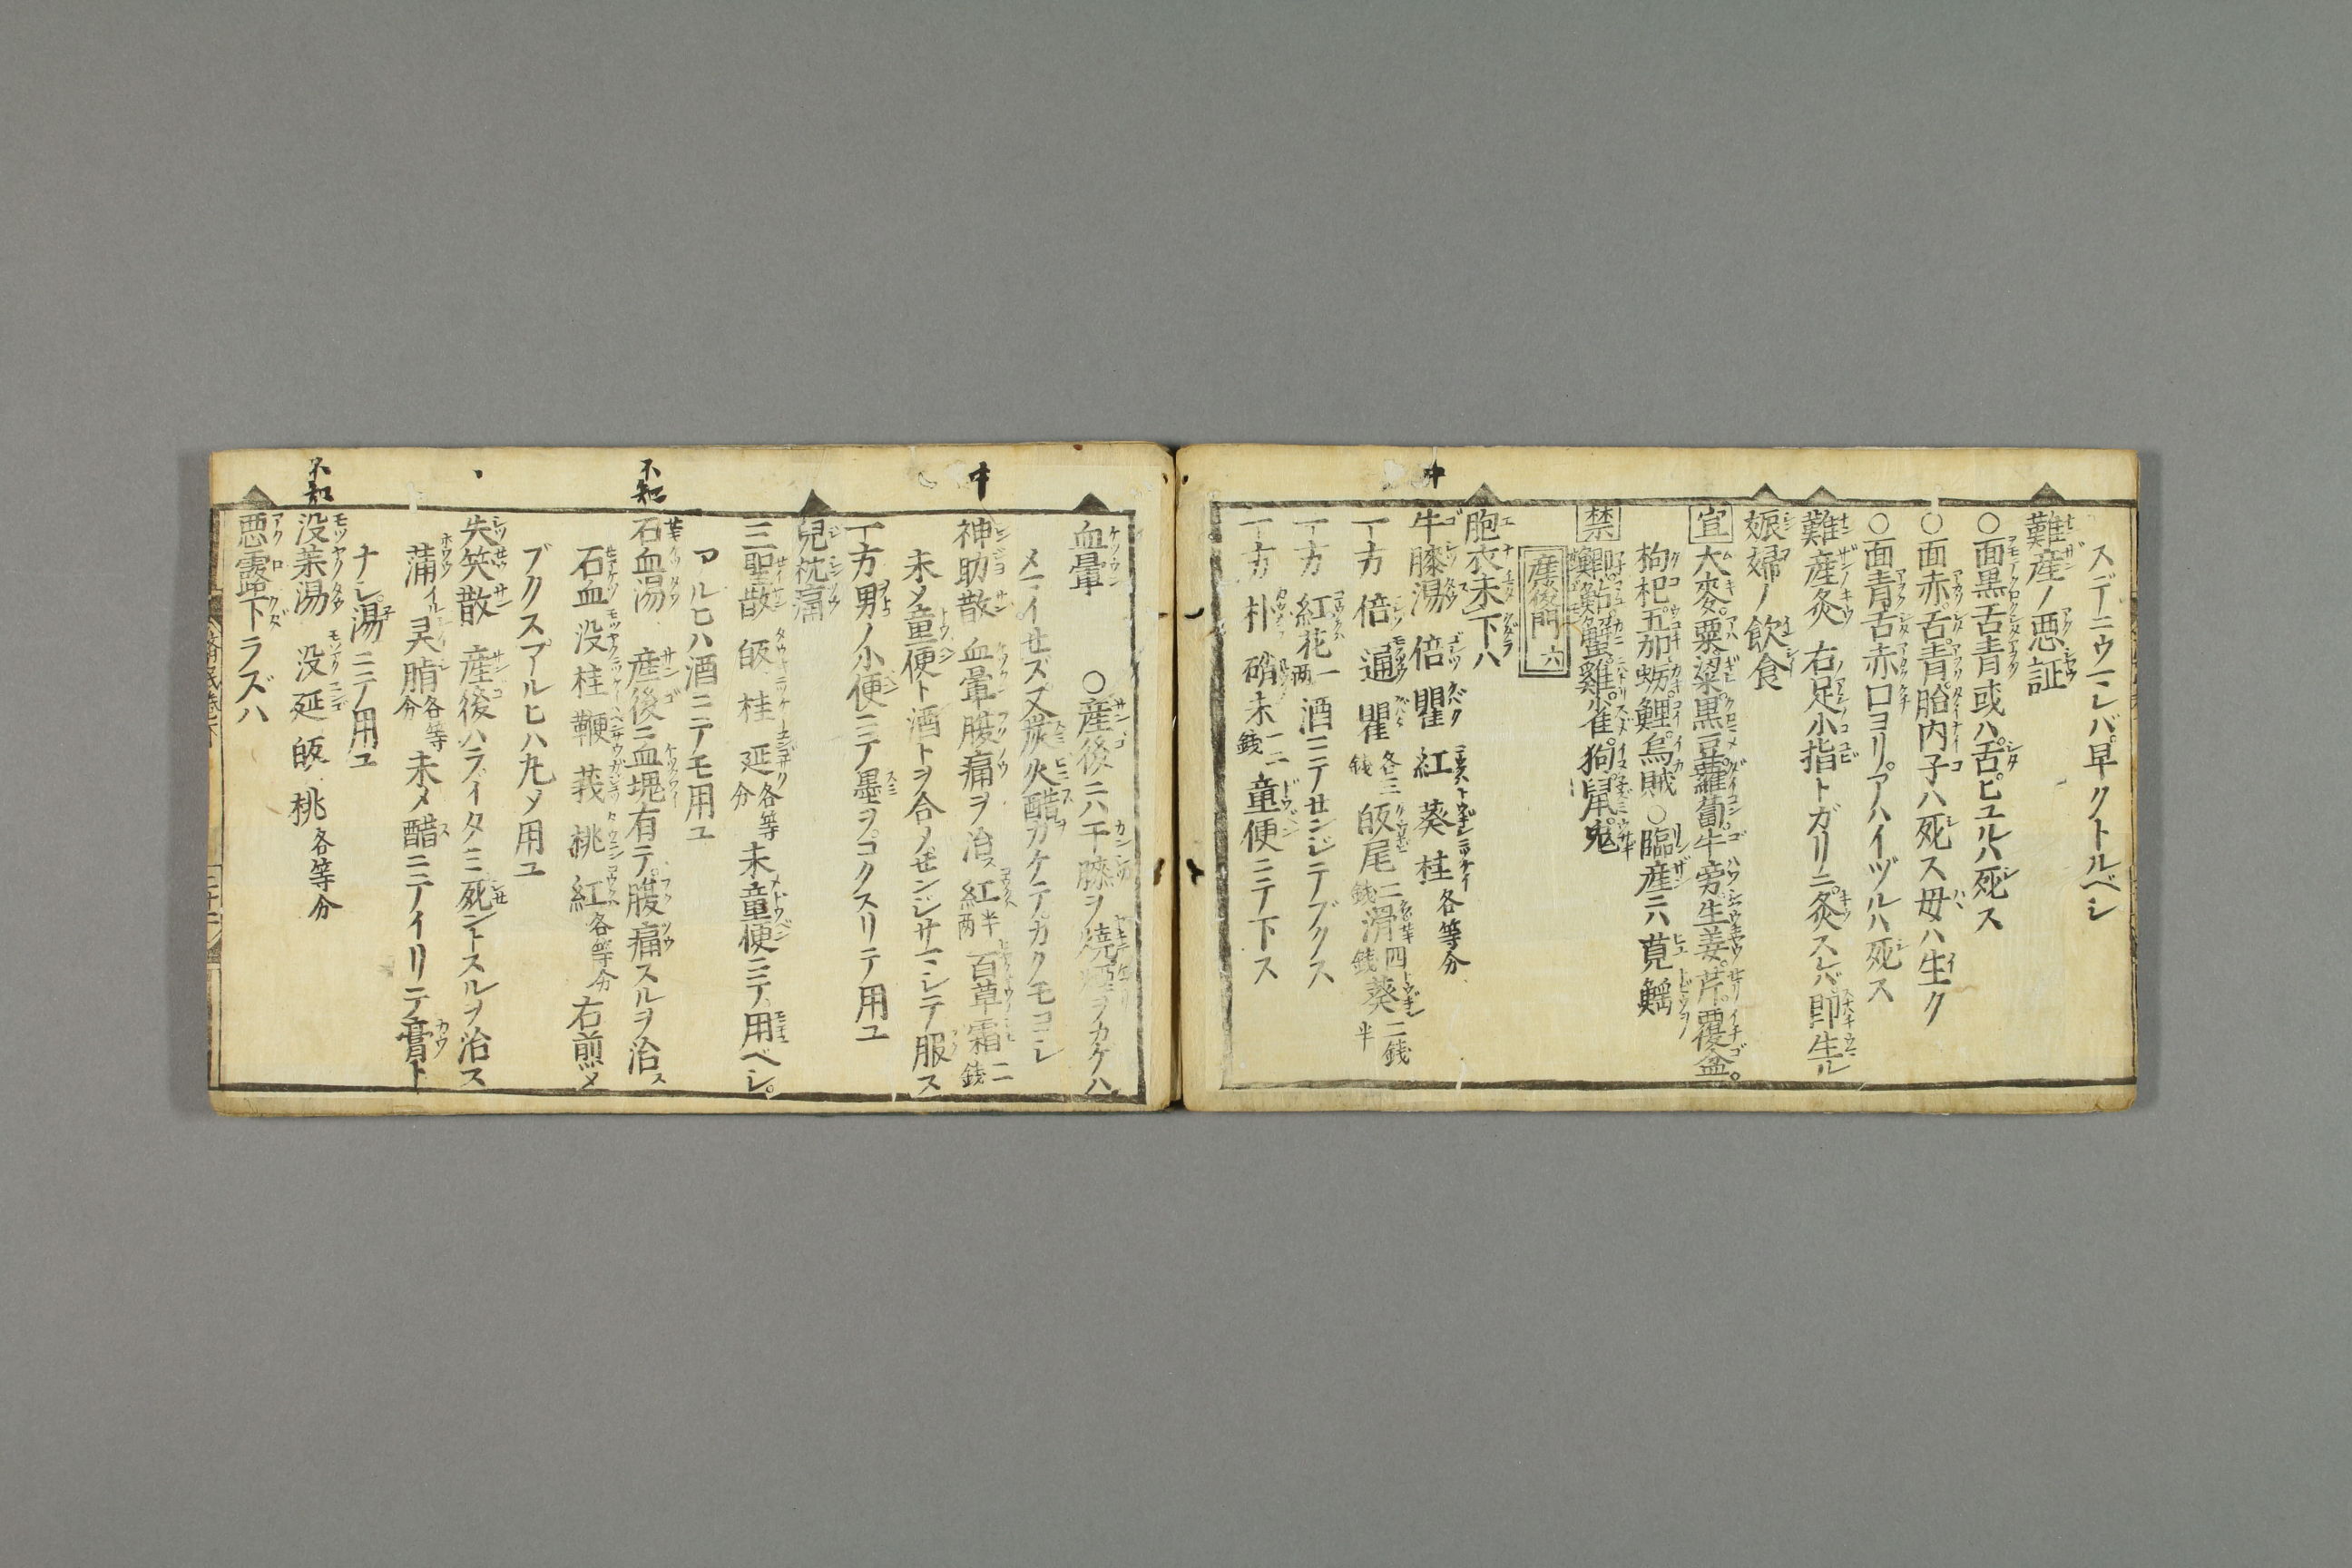 スデニウマレバ早クトルベシ
難産ノ悪証
○面黒舌青或ハ舌ヒユルハ死ス
○面赤舌青胎内子ハ死ス母ハ生ク
○面青舌赤口ヨリアハイヅルハ死ス
難産灸 右足小指トガリニ灸スレバ即生ル
娠婦ノ飲食
宜 大麥粟粱黒豆蘿蔔牛旁生姜芹覆盆
枸杞五加蛎鯉烏賊○臨産ニハ莧鰌
禁 鮎蟹雞雀狗鼠兎
産後門 六
胞衣未下ハ
中
牛膝湯 倍 瞿 紅 葵 桂 各等分
一方 倍 通 瞿 各三銭 皈尾 二銭 滑 四銭 葵 二銭半
一方 紅花 一両 酒ニテせンジテブクス
一方 朴硝 末 一二銭 童便ニテ下ス
血暈 ○産後ニハ干膝ヲ焼煙ヲカケハ
メマイせズ又炭火醋カケテカクモヨシ
中
神助散 血暈腹痛ヲ治ス 紅 半両 百草霜 二銭
末メ童便ト酒トヲ合ノせンジサマシテ服ス
一方 男ノ小便ニテ墨ヲコクスリテ用ユ
兒枕痛
三聖散 皈 桂 延 各等分 末童便ニテ用ベシ
アルヒハ酒ニテモ用ユ
不知
石血湯 産後ニ血塊有テ腹痛スルヲ治ス
石血 没 桂 鞕 莪 桃 紅 各等分 右煎メ
ブクスアルヒハ丸メ用ユ
失笑散 産後ハライタミ死ントスルヲ治ス
蒲 㚑脂 各等分 末メ醋ニテイリテ膏ト
ナシ湯ニテ用ユ
不知
没薬湯 没 延 皈 桃 各等分
悪露下ラズハ